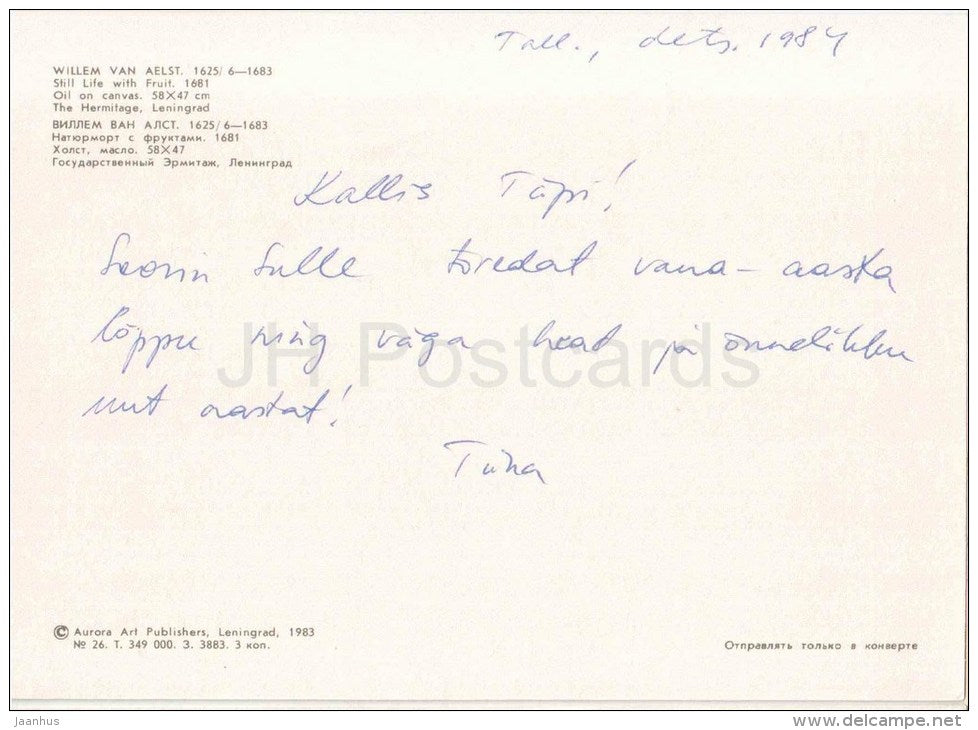 Tall., dets. 1984
WILLEM VAN AELST. 1625/6—1683
Still Life with Fruit. 1681
Oil on canvas. 58×47 cm
The Hermitage, Leningrad
ВИЛЛЕМ ВАН АЛСТ. 1625/6—1683
Натюрморт с фруктами. 1681
Холст, масло. 58×47
Государственный Эрмитаж, Ленинград
Kallis Täpi!
Soovin Sulle toredat vana-aasta
lõppu ning väga head ja õnnelikku
uut aastat!
Tiina
JH Postcards
© Aurora Art Publishers, Leningrad, 1983
№ 26. Т. 349 000. З. 3883. 3 коп.
Отправлять только в конверте
jaanhus
www.delcampe.net